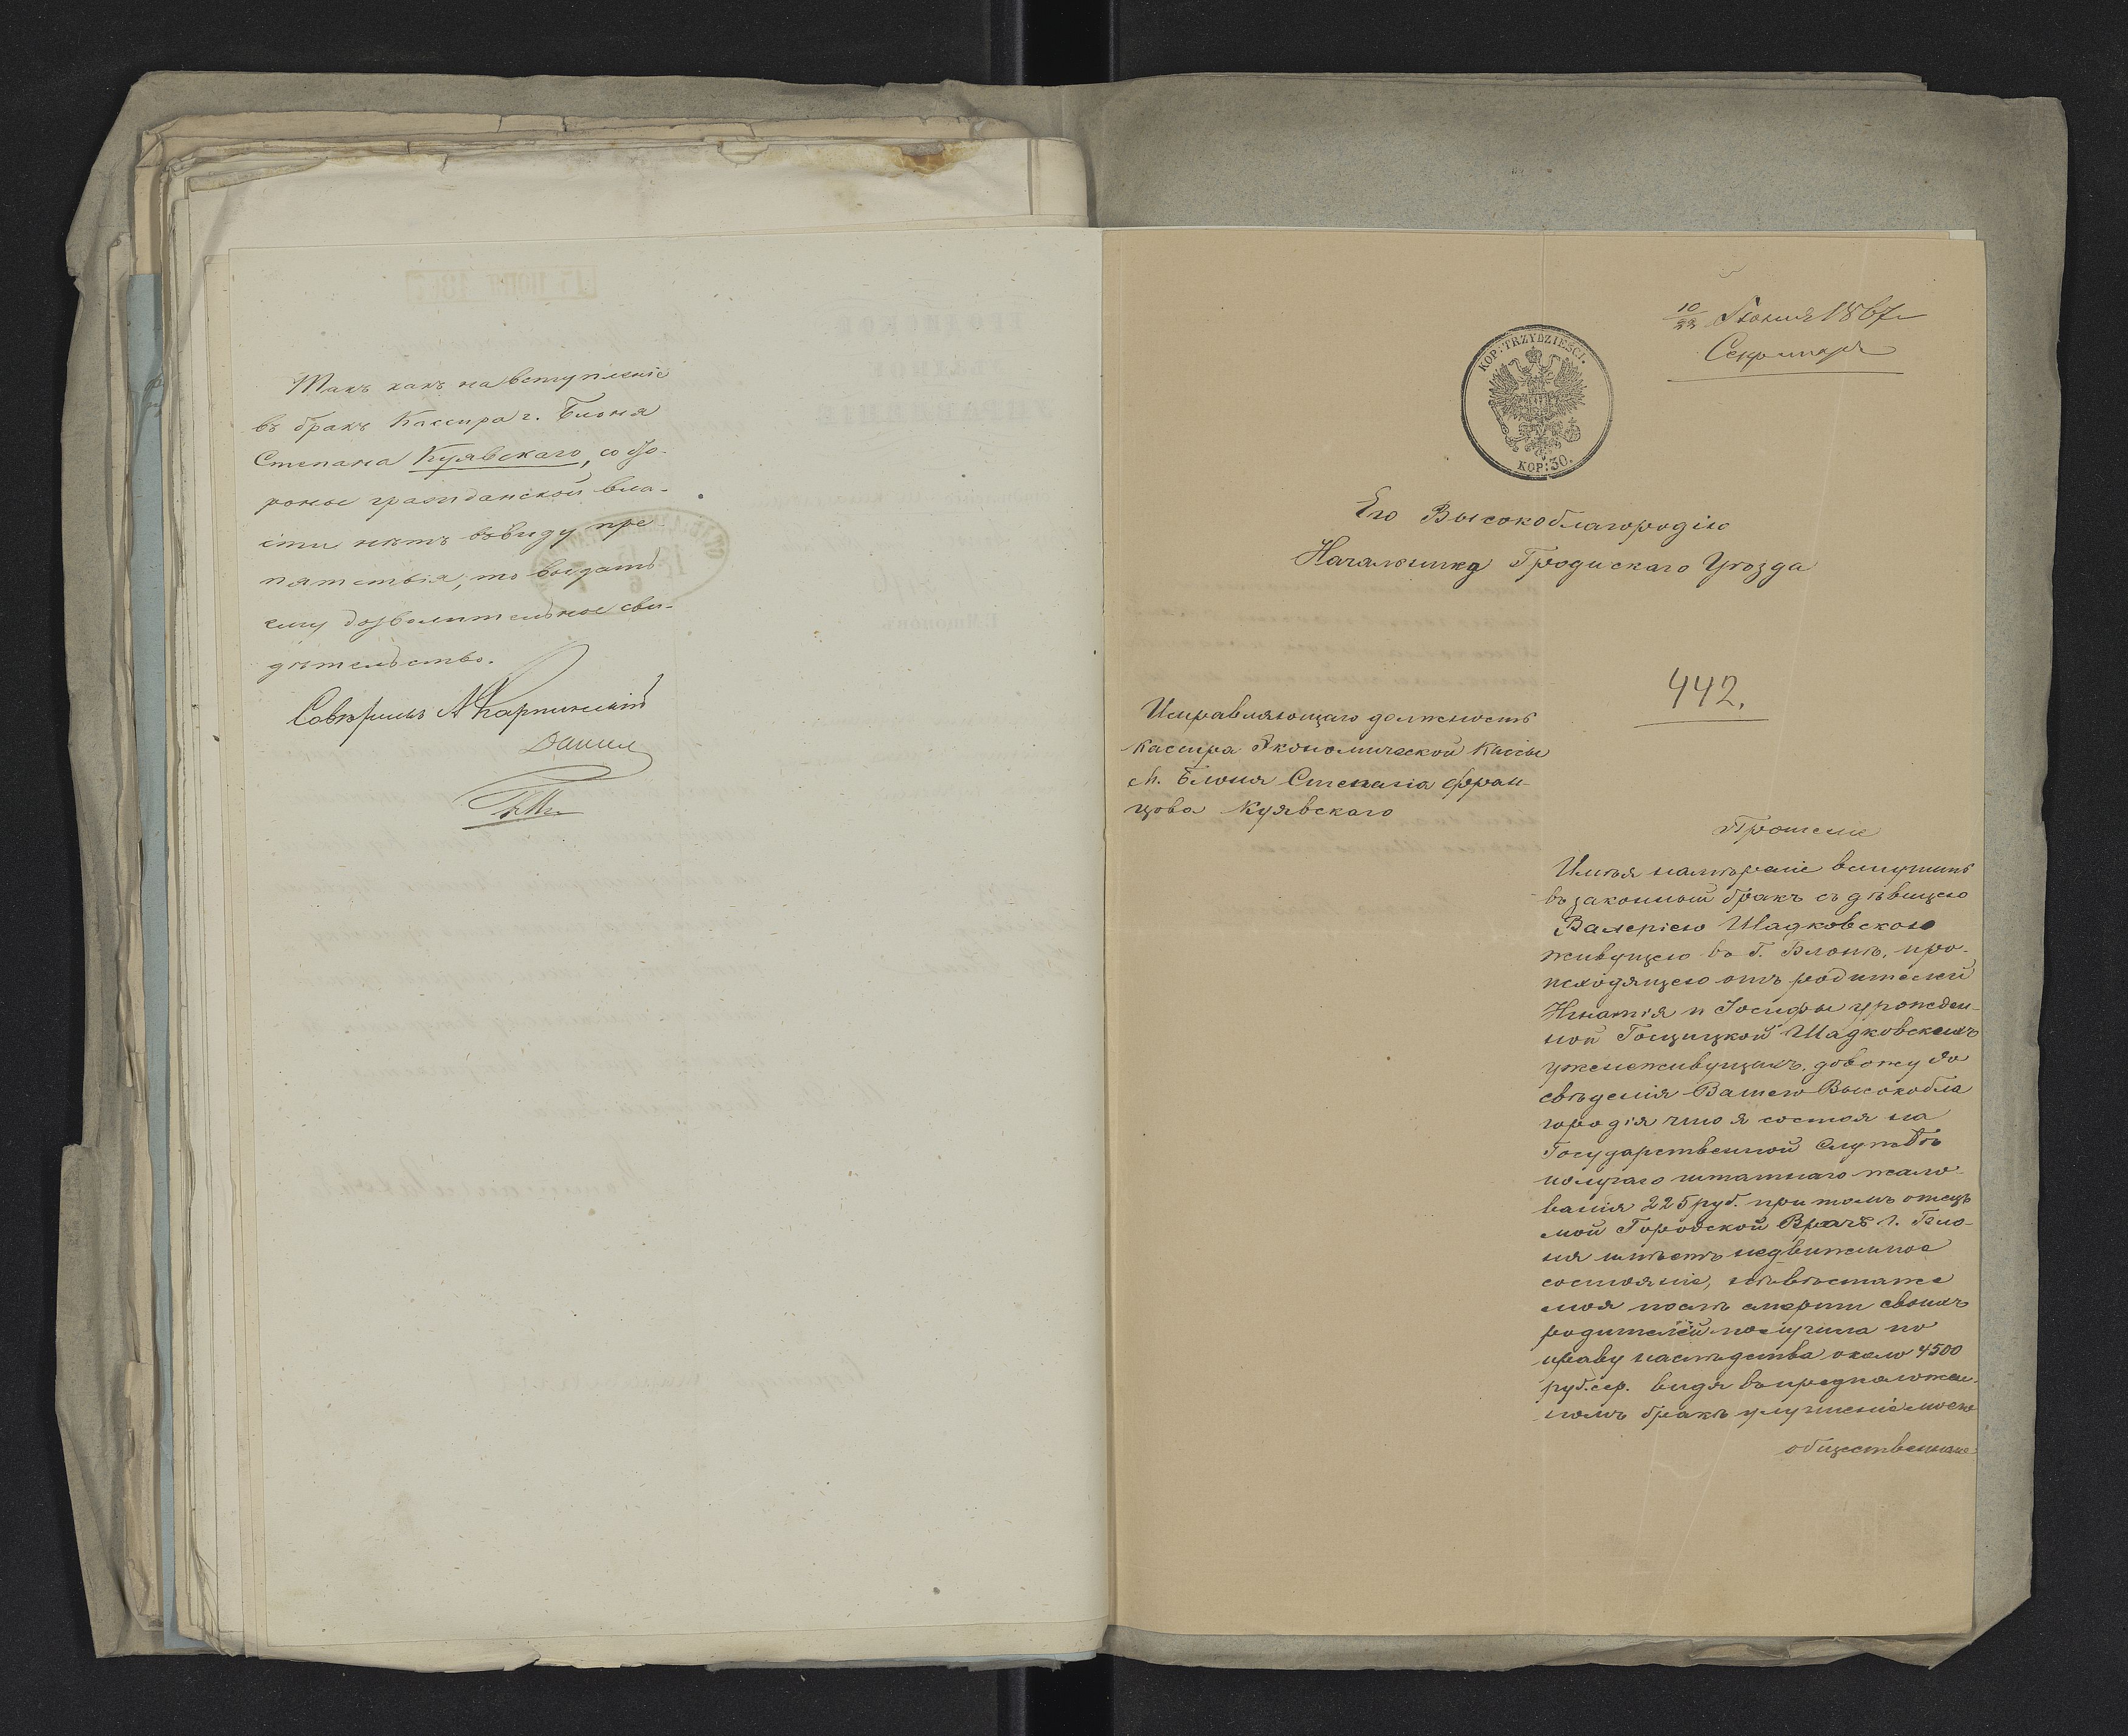 Такъ какъ на вступленіе
въ бракъ Кассира г. Блоня
Степана Куявскаго, со сто-
роны гражданской вла-
сти нѣтъ въ виду пре-
пятствія, то выдать
ему дозволительное сви-
дѣтельство.
10/22 Іюня 1867
КОР: TRZYDZIEŚCI.
КОР: 30.
Его Высокоблагородію
Начальнику Гродискаго Уѣзда
442.
Исправляющаго должность
Кассира Экономической Кассы
г. Блоня Степана Фран-
цова Куявскаго
Прошеніе
Имѣя намѣреніе вступить
въ законный бракъ съ дѣвицею
Валеріею Шадковскою
живущею въ Г. Блонѣ, про-
исходящею отъ родителей
Игнатія и Іосифы урожден-
ной Госцицкой Шадковскихъ
уже неживущихъ, довожу до
свѣденія Вашего Высокобла
городія что я состоя на
Государственной Службѣ
получаю штатнаго жало-
ванія 225 руб. при томъ отецъ
мой Городской Врачъ г. Бло-
ня имѣетъ недвижимое
состояніе, невѣста же
моя послѣ смерти своихъ
родителей получила по
праву наслѣдства около 4500
руб. сер. видя въ предположен-
номъ бракѣ улучшеніе моего
общественнаго